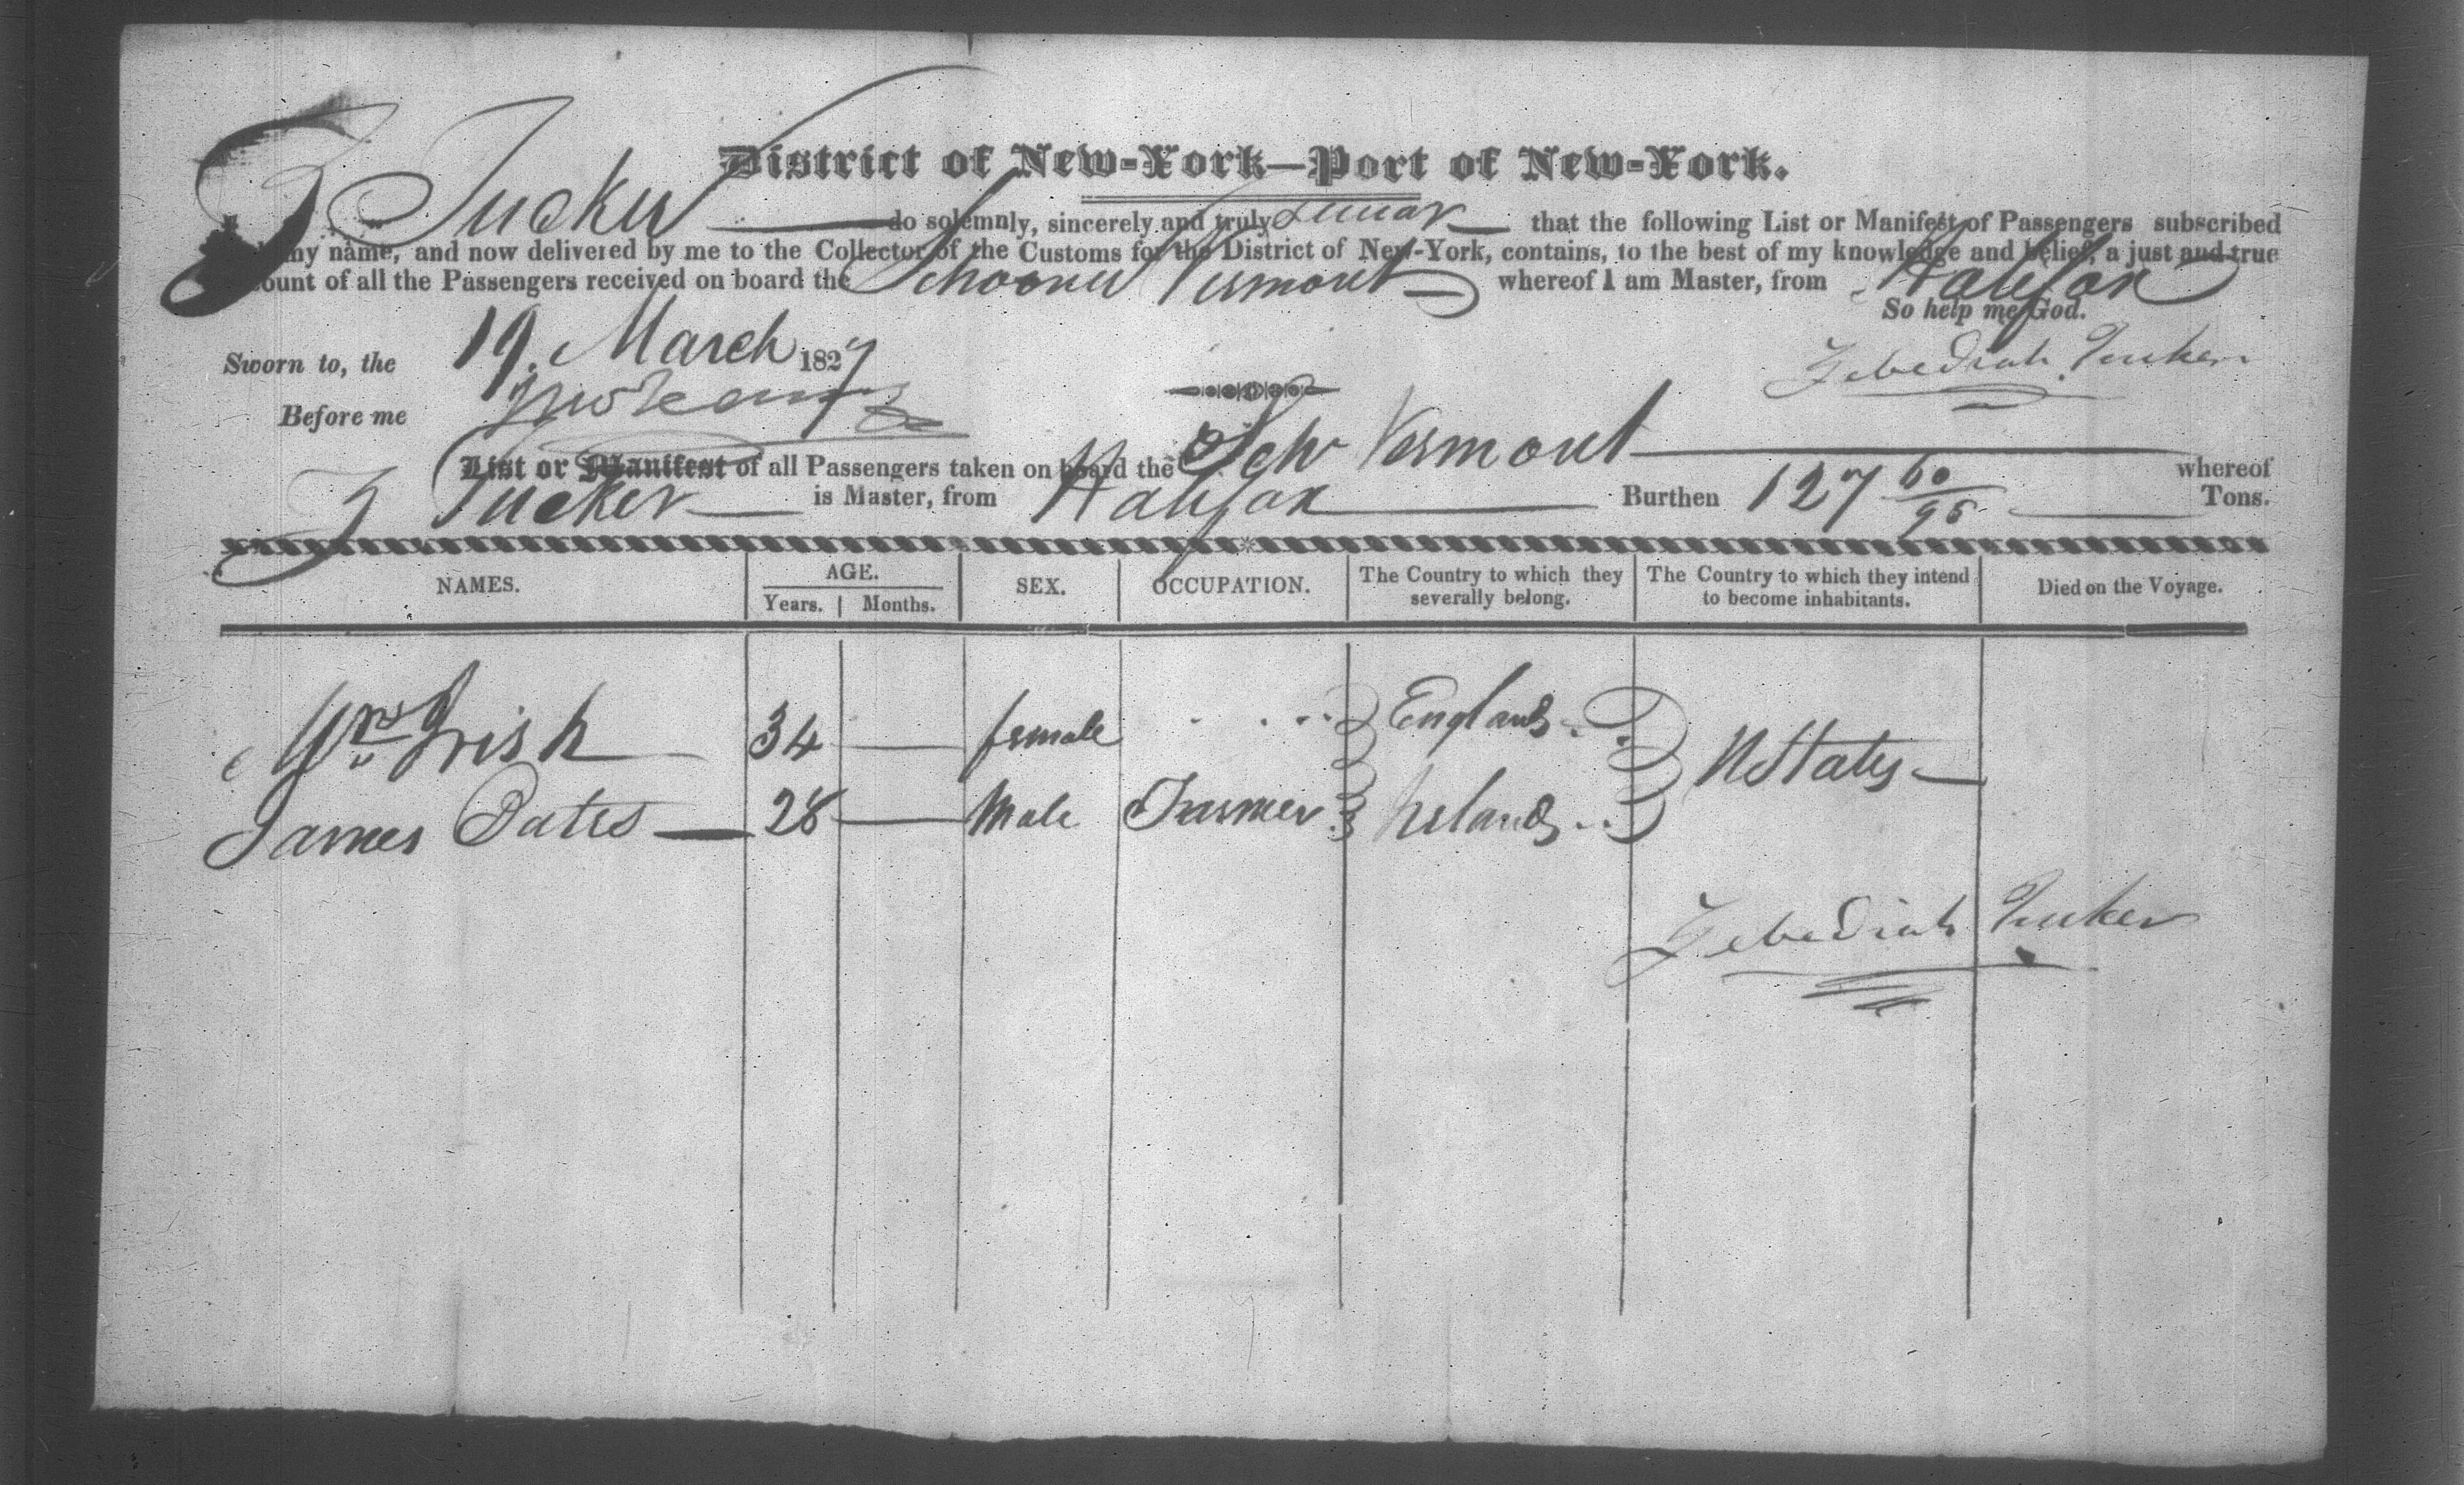 District of New-York—Port of New-York.
Z Tucker do solemnly, sincerely and truly swear that the following List or Manifest of Passengers subscribed
my name, and now delivered by me to the Collector of the Customs for the District of New-York, contains, to the best of my knowledge and belief, a just and true
count of all the Passengers received on board the Schooner Vermont whereof I am Master, from Halifax
So help me God.
Sworn to, the 19. March 1827
Zebediah Tucker
Before me
List or Manifest of all Passengers taken on board the Schr Vermont whereof
Z Tucker is Master, from Halifax Burthen 127 60/95 Tons.
NAMES. AGE. Years. Months. SEX. OCCUPATION. The Country to which they severally belong. The Country to which they intend to become inhabitants. Died on the Voyage.
Mrs Irish 34 — female England UStates
James Oates 28 — Male Farmer Ireland
Zebediah Tucker